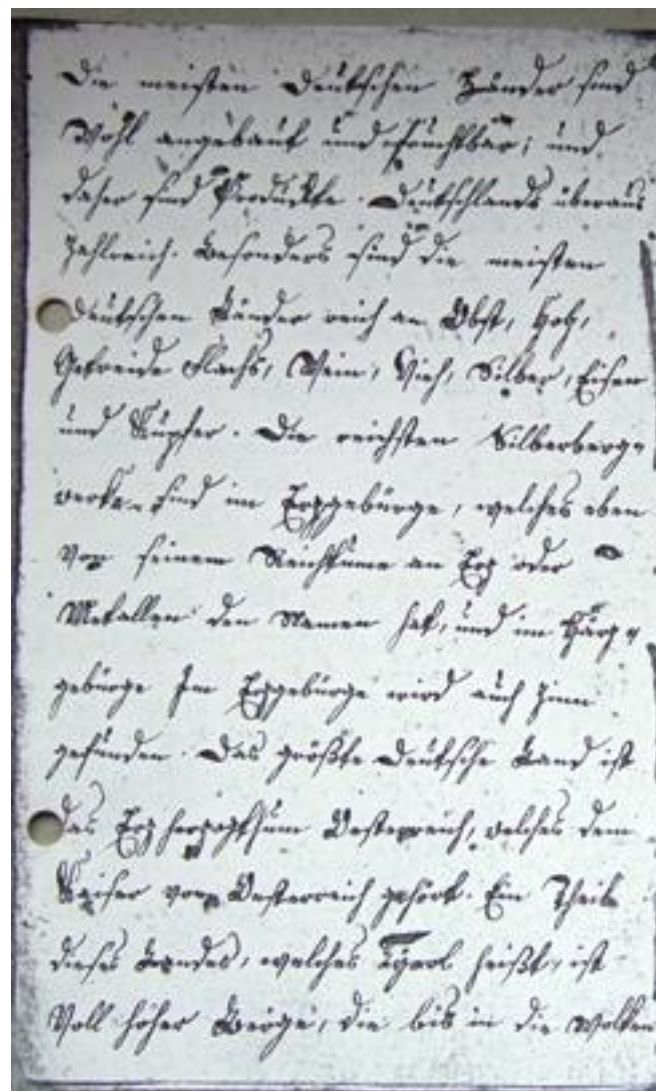 Die meisten Deutschen Länder sind
Wohl angebaut und Fruchtbar; und
daher sind Produckte Deutschlands überaus
zahlreich. Besonders sind die meisten
Deutschen Länder reich an Obst, Holz,
Getreide Flachs, Wein, Vieh, Silber, Eisen
und Kupfer. Die reichsten Silberberg-
werke sind im Erzgebürge, welches eben
von seinem Reichthume an Erz oder
Metallen den Namen hat, und im Harz-
gebürge Im Erzgebürge wird auch Zinn
gefunden. Das größte Deutsche Land ist
das Erzherzogthum Oesterreich, welches dem
Kaiser von Oesterreich gehört. Ein Theil
dieses Landes, welches Tyrol heißt, ist
Voll hoher Berge, die bis in die Wolken